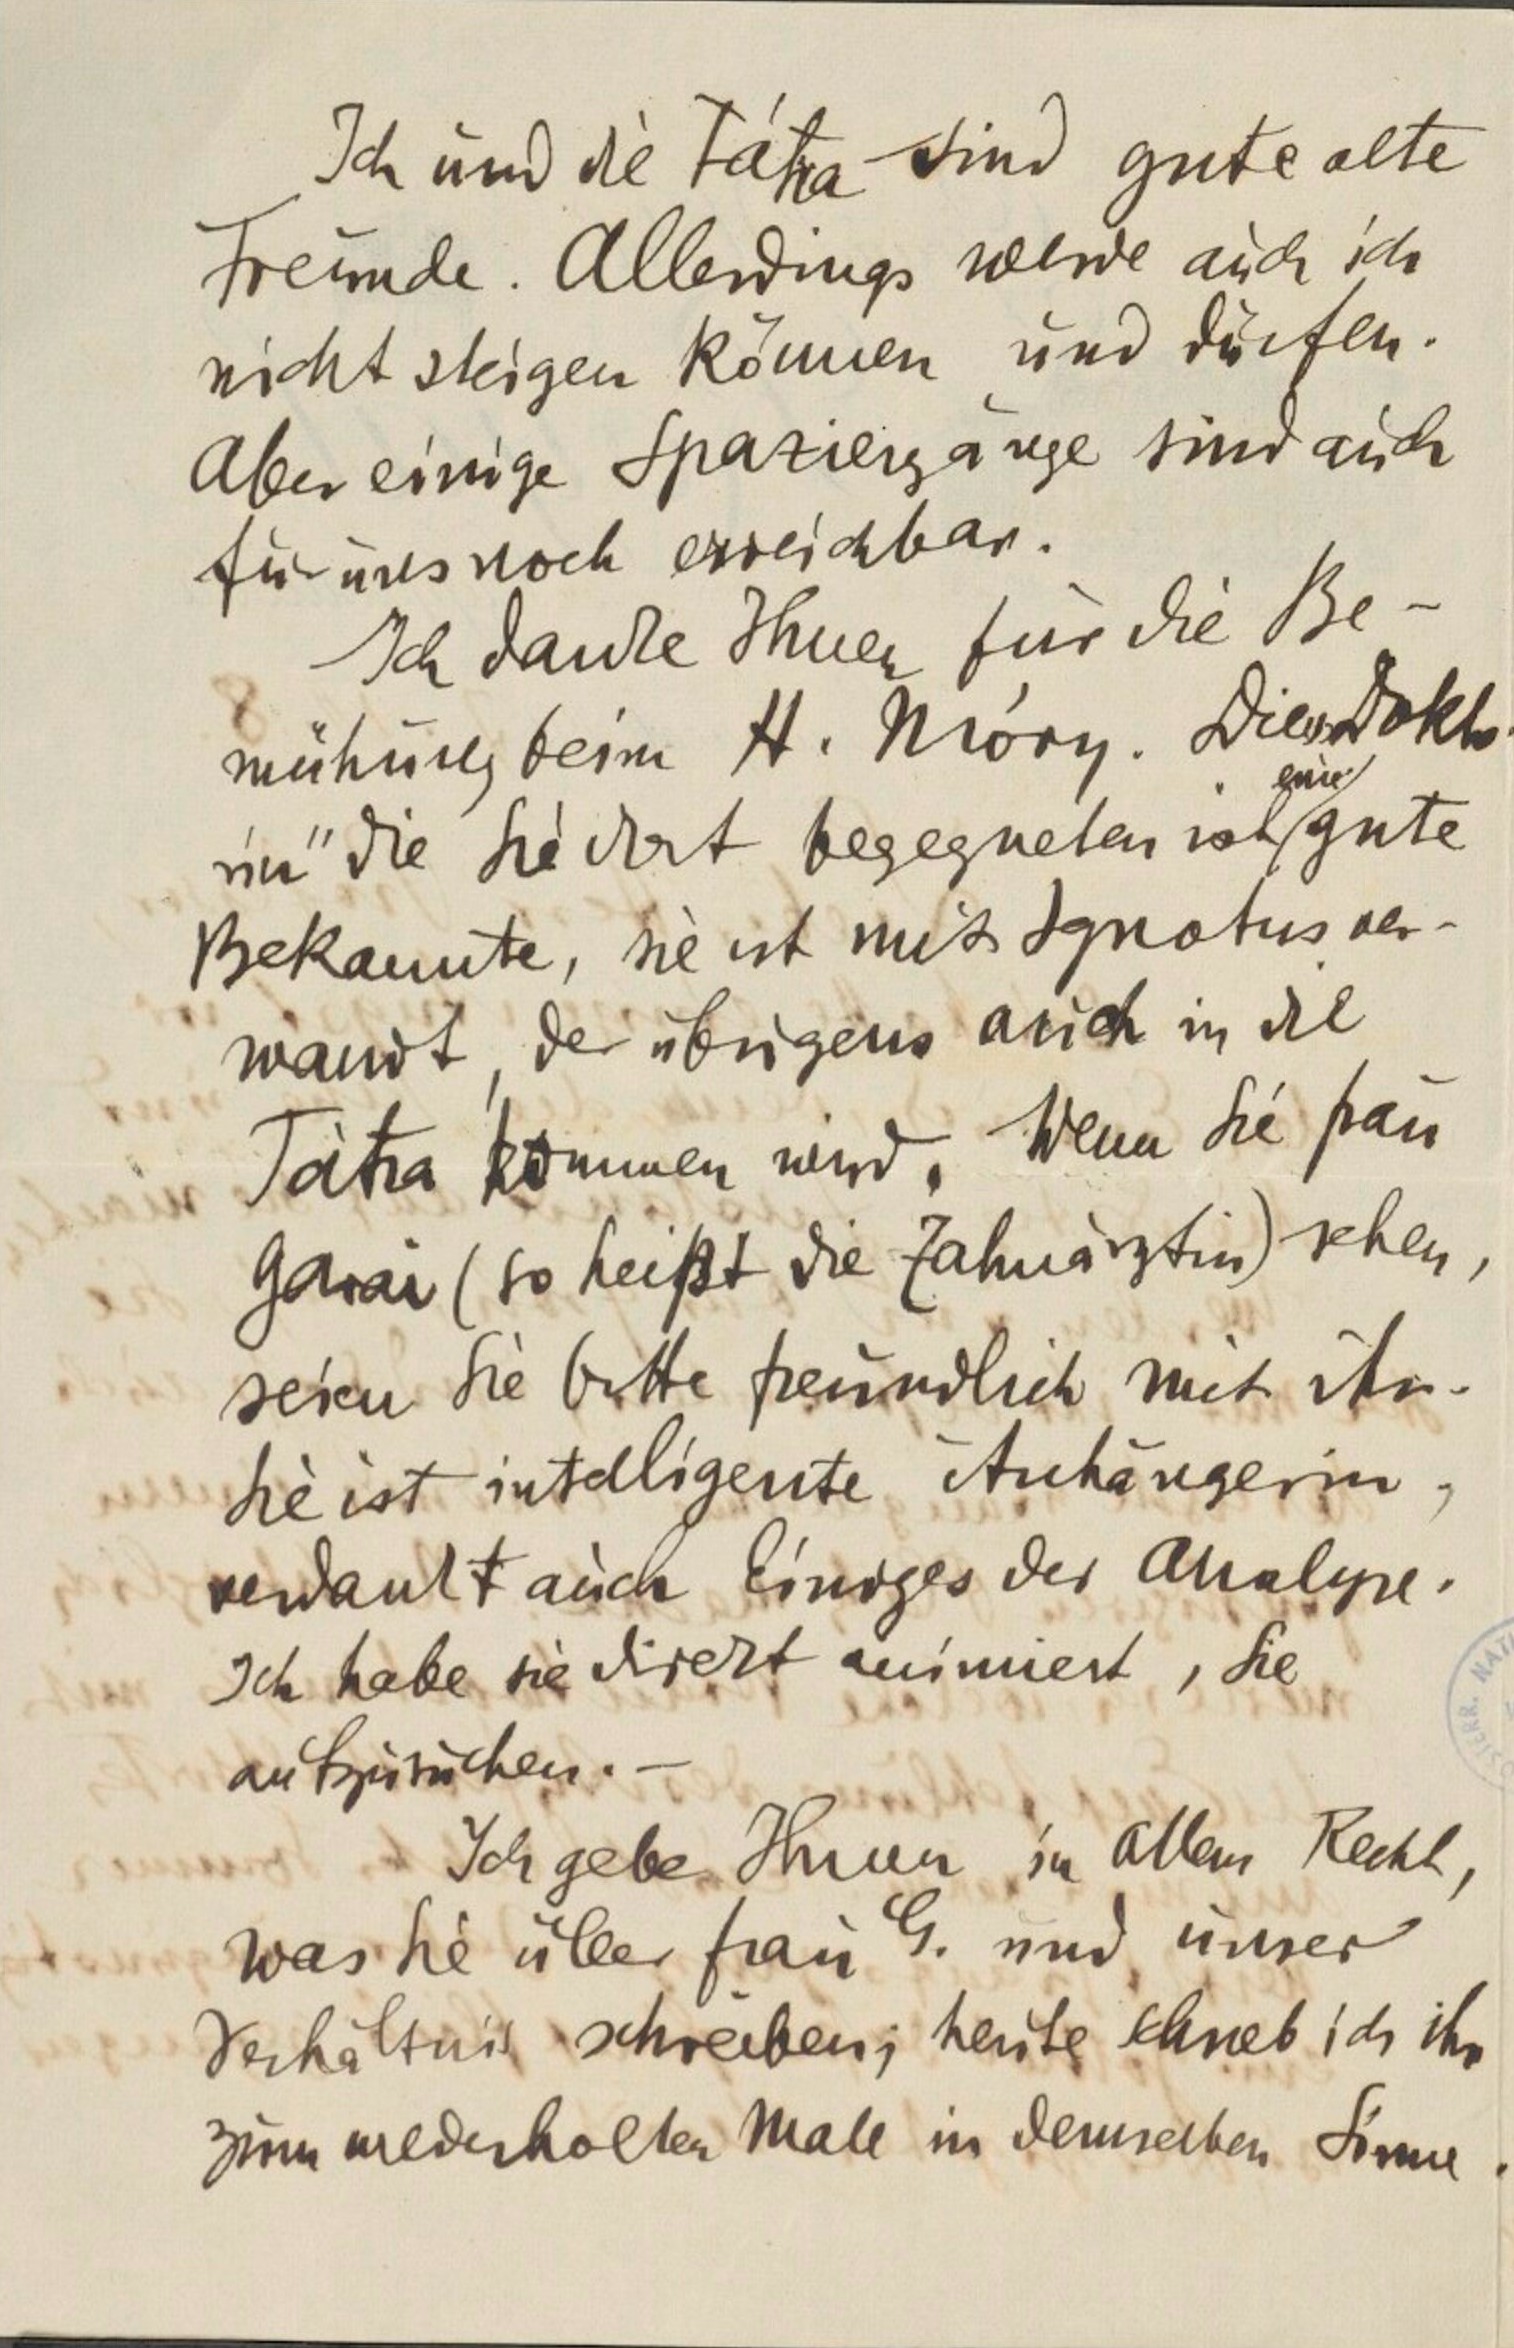 Ich und die Tátra sind gute alte
Freunde. Allerdings werde auch ich
nicht steigen können und dürfen.
Aber einige Spaziergänge sind auch
für uns noch erreichbar.
Ich danke Ihnen für die Be-
mühung beim H. Móry. Die „Dokto-
rin" die Sie dort begegneten ist eine gute
Bekannte, sie ist mit Ignotus ver-
wandt, der übrigens auch in die
Tátra kommen wird. Wenn Sie Frau
Garai (so heißt die Zahnärztin) sehen,
seien Sie bitte freundlich mit ihr.
Sie ist intelligente Anhängerin,
verdankt auch Einiges der Analyse.
Ich habe sie direkt animiert, Sie
aufzusuchen. —
Ich gebe Ihnen in Allem Recht,
was Sie über Frau G. und unser
Verhältnis schreiben; heute schrieb ich ihr
zum wiederholten Male in demselben Sinne.